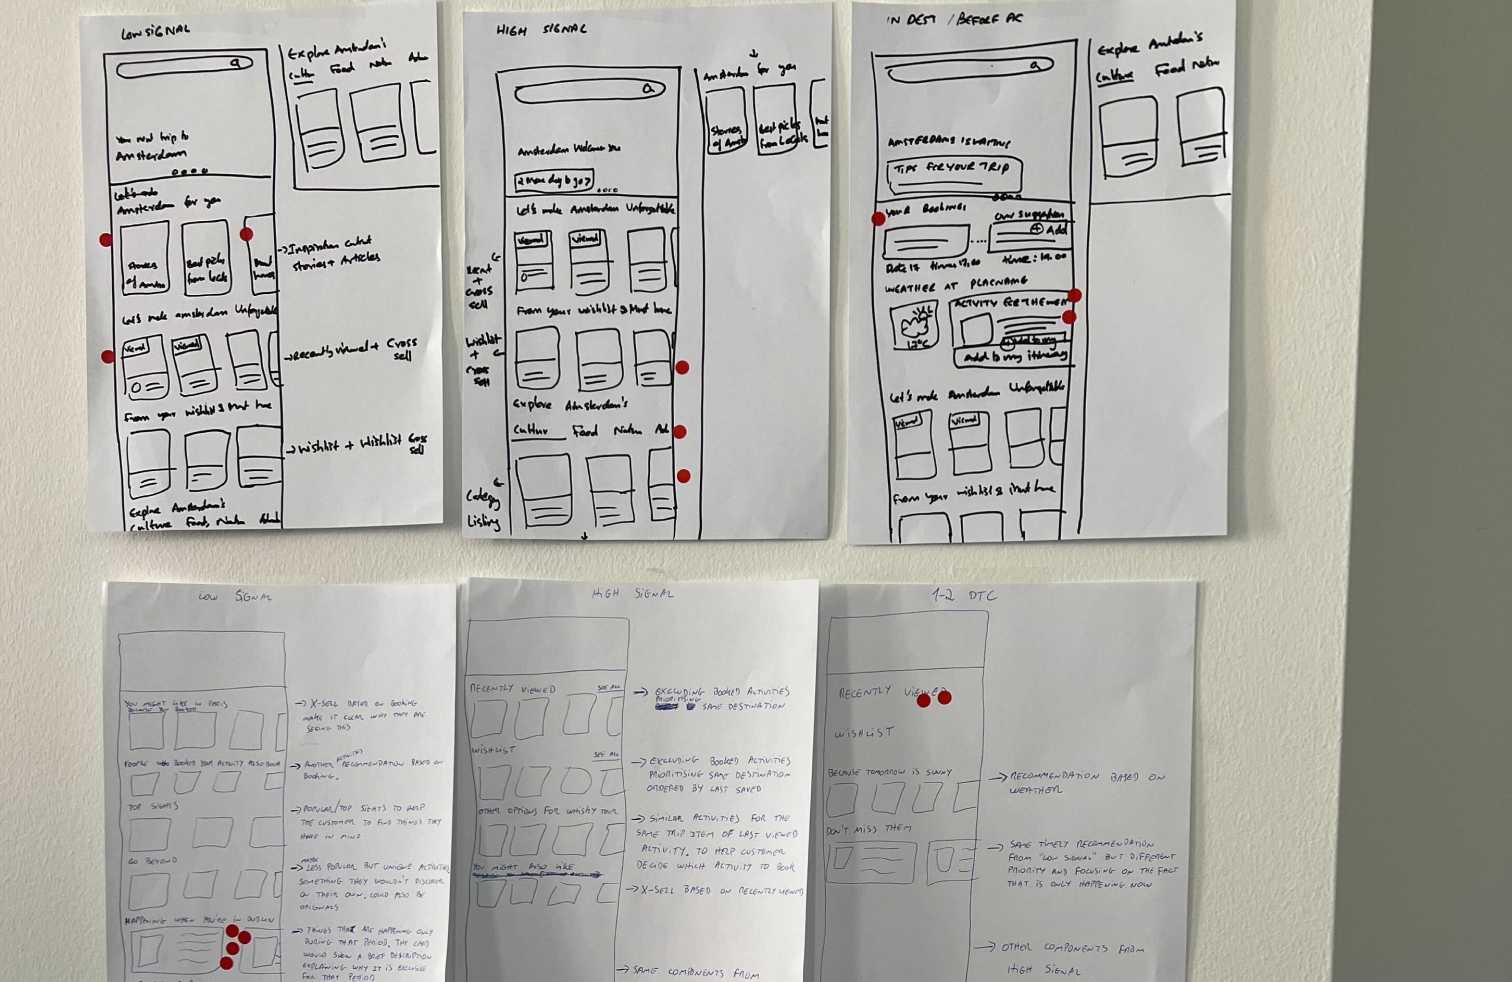 LOW SIGNAL
Your next trip to
Amsterdam
Amsterdam for you
Stories
of Amster
Best picks
from locals
Must
haves
→ Inspiration content
stories + Articles
Let's make amsterdam Unforgettable
Viewed
Viewed
→ recently viewed + Cross
sell
From your wishlist & Must have
→ wishlist + Wishlist Cross
sell
Explore Amsterdam's
Culture Food, Nature
Explore Amsterdam's
Culture Food Nature
HIGH SIGNAL
Amsterdam Welcomes you
2 More day to go >
Let's make Amsterdam Unforgettable
Viewed
Viewed
Recent
+
Cross
sell
From your wishlist & Must have
Wishlist
+
Cross
sell
Explore Amsterdam's
Culture Food Nature Ad
Category
Listing
Amsterdam for you
Stories
of Amst
Best picks
from Locals
IN DEST / BEFORE AC
AMSTERDAM IS WAITING
TIPS FOR YOUR TRIP
YOUR BOOKINGS
OUR SUGGESTION
+ Add
Date 17 time: 17.00
time: 19.00
WEATHER AT PLACENAME
12°C
ACTIVITY FOR THE
Add to my itinerary
Let's make Amsterdam Unforgettable
Viewed
Viewed
From your wishlist & Must have
Explore Amsterdam's
Culture Food Nature
LOW SIGNAL
YOU MIGHT LIKE IN PARIS
BECAUSE YOU BOOKED
→ X-SELL BASED ON BOOKING
MAKE IT CLEAR WHY THEY ARE
SEEING THIS
PEOPLE WHO BOOKED YOUR ACTIVITY ALSO BOOK
→ ANOTHER RECOMMENDATION BASED ON
BOOKING.
TOP SIGHTS
→ POPULAR/TOP SIGHTS TO HELP
THE CUSTOMER TO FIND THINGS THEY
HAVE IN MIND
GO BEYOND
→ LESS POPULAR BUT UNIQUE ACTIVITIES
SOMETHING THEY WOULDN'T DISCOVER
ON THEIR OWN. COULD ALSO BE
ORIGINALS
HAPPENING WHEN YOU'RE IN DUBLIN
→ THINGS THAT ARE HAPPENING ONLY
DURING THAT PERIOD. THE CARD
WOULD SHOW A BRIEF DESCRIPTION
EXPLAINING WHY IT IS EXCLUSIVE
FOR THAT PERIOD
HIGH SIGNAL
RECENTLY VIEWED
SEE ALL
→ EXCLUDING BOOKED ACTIVITIES
PRIORITISING
SAME DESTINATION
WISHLIST
SEE ALL
→ EXCLUDING BOOKED ACTIVITIES
PRIORITISING SAME DESTINATION
ORDERED BY LAST SAVED
OTHER OPTIONS FOR WHISKY TOUR
→ SIMILAR ACTIVITIES FOR THE
SAME TRIP ITEM OF LAST VIEWED
ACTIVITY. TO HELP CUSTOMER
DECIDE WHICH ACTIVITY TO BOOK
YOU MIGHT ALSO LIKE
→ X-SELL BASED ON RECENTLY VIEWED
→ SAME COMPONENTS FROM
1-2 DTC
RECENTLY VIEWED
WISHLIST
BECAUSE TOMORROW IS SUNNY
→ RECOMMENDATION BASED ON
WEATHER
DON'T MISS THEM
→ SAME TIMELY RECOMMENDATION
FROM "LOW SIGNAL" BUT DIFFERENT
PRIORITY AND FOCUSING ON THE FACT
THAT IS ONLY HAPPENING NOW
→ OTHER COMPONENTS FROM
HIGH SIGNAL